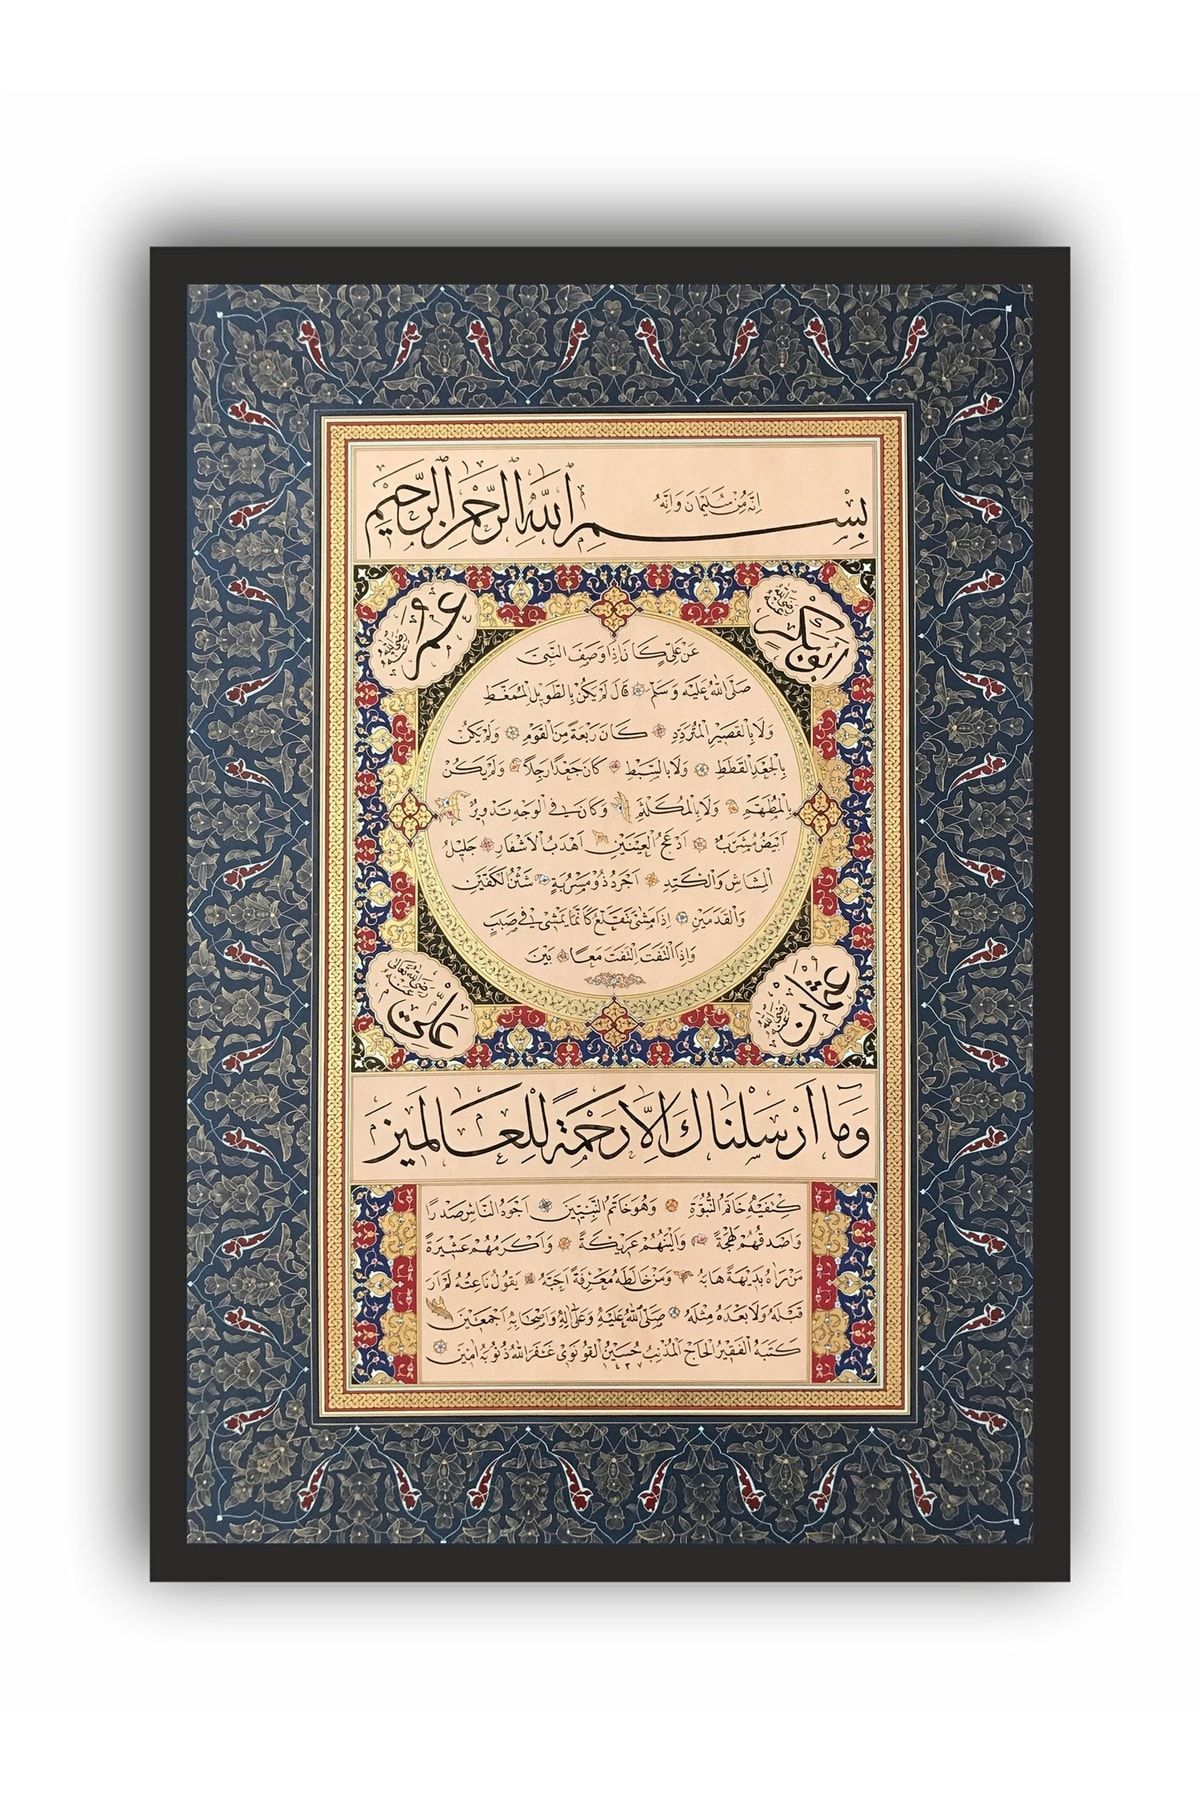 انه من سليمان وانه
بسم الله الرحمن الرحيم
ابوبكر رضي الله عنه
عمر رضي الله عنه
عن علي كان اذا وصف النبي
صلى الله عليه وسلم قال لم يكن بالطويل الممغط
ولا بالقصير المتردد كان ربعة من القوم ولم يكن
بالجعد القطط ولا بالسبط كان جعدا رجلا ولم يكن
بالمطهم ولا بالمكلثم وكان في الوجه تدوير
ابيض مشرب ادعج العينين اهدب الاشفار جليل
المشاش والكتد اجرد ذو مسربة شثن الكفين
والقدمين اذا مشى تقلع كانما يمشي في صبب
واذا التفت التفت معا بين
عثمان رضي الله عنه
علي رضي الله تعالى عنه
وما ارسلناك الا رحمة للعالمين
كتفيه خاتم النبوة وهو خاتم النبيين اجود الناس صدرا
واصدقهم لهجة والينهم عريكة واكرمهم عشيرة
من راه بديهة هابه ومن خالطه معرفة احبه يقول ناعته لم ار
قبله ولا بعده مثله صلى الله عليه وعلى اله واصحابه اجمعين
كتبه الفقير الحاج المذنب حسين القونوى غفر الله ذنوبه امين